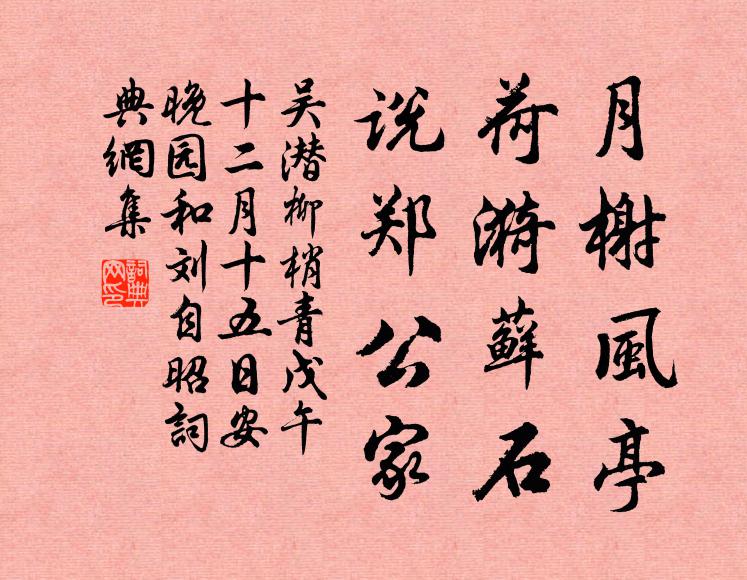 月榭風亭
荷漪蘚石
说郑公家
吴潜柳梢青戊午
十二月十五日安
晚园和刘自昭詞
典網集
詞典網印